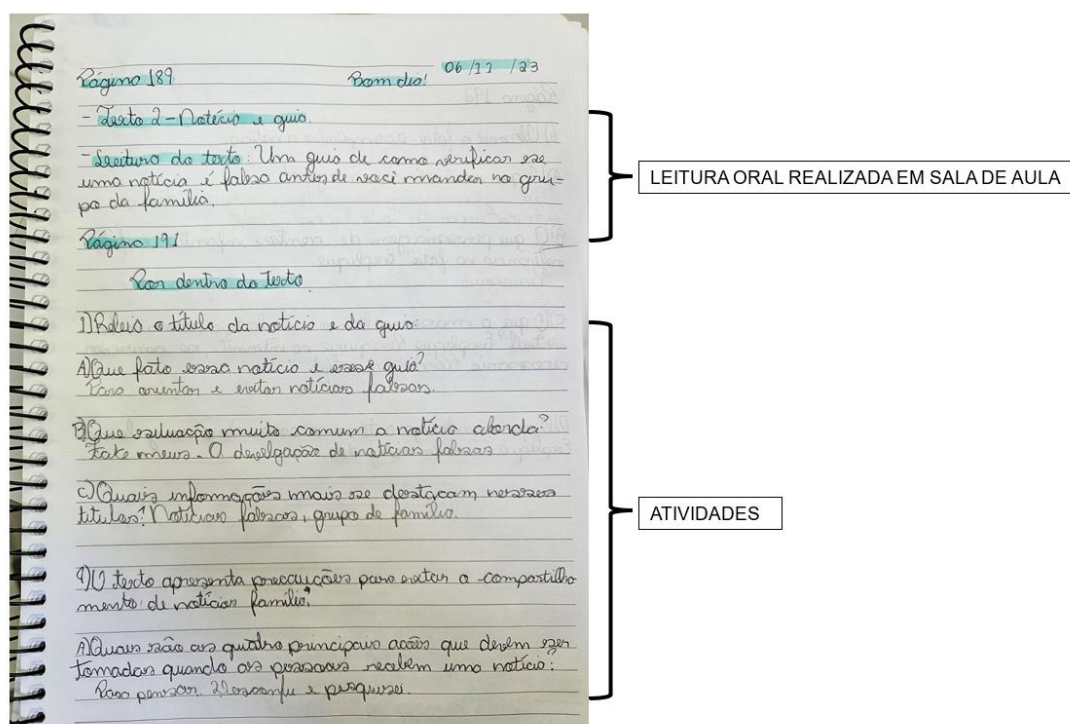 Página 189 Bom dia! 06/11/23
- Texto 2 - Notícia e guia.
- Leitura do texto: Um guia de como verificar se
uma notícia é falsa antes de você mandar no gru-
po da família.
Página 191
Por dentro do Texto.
1) Releia o título da notícia e da guia:
A) Que fato essa notícia e esse guia?
Para orientar e evitar notícias falsas.
B) Que situação muito comum a notícia aborda?
Fake news. A divulgação de notícias falsas
C) Quais informações mais se destacam nesses
títulos? Notícias falsas, grupo de família.
O texto apresenta precauções para evitar o compartilha
mento de notícias família.
A) Quais são as quatro principais ações que devem ser
tomadas quando as pessoas recebem uma notícia:
Para pensar. Desconfie e pesquisei.
LEITURA ORAL REALIZADA EM SALA DE AULA
ATIVIDADES